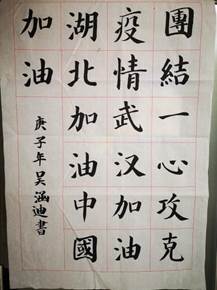 團結一心攻克
疫情武汉加油
湖北加油中國
加油
庚子年吴涵迪書